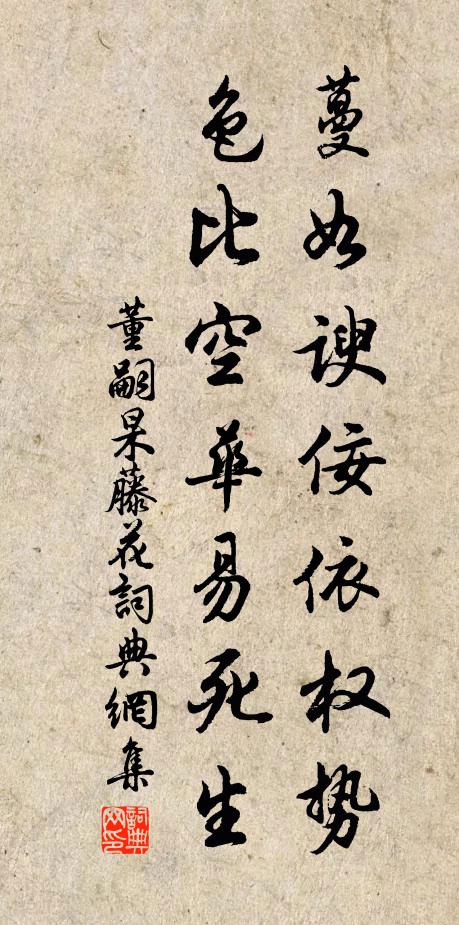 蔓如谀佞依权势
色比空華易死生
董嗣杲藤花詞典網集
詞典网印